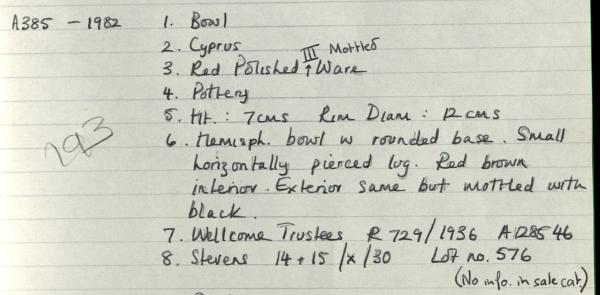 A385 - 1982 1. Bowl
2. Cyprus
III Mottled
3. Red Polished ↑ Ware
4. Pottery
5. Ht. : 7cms Rim Diam : 12 cms
293
6. Hemisph. bowl w rounded base. Small
horizontally pierced lug. Red brown
interior. Exterior same but mottled with
black.
7. Wellcome Trustees R 729/1936 A128546
8. Stevens 14 + 15 /x/30 Lot no. 576
(No info. in sale cat.)